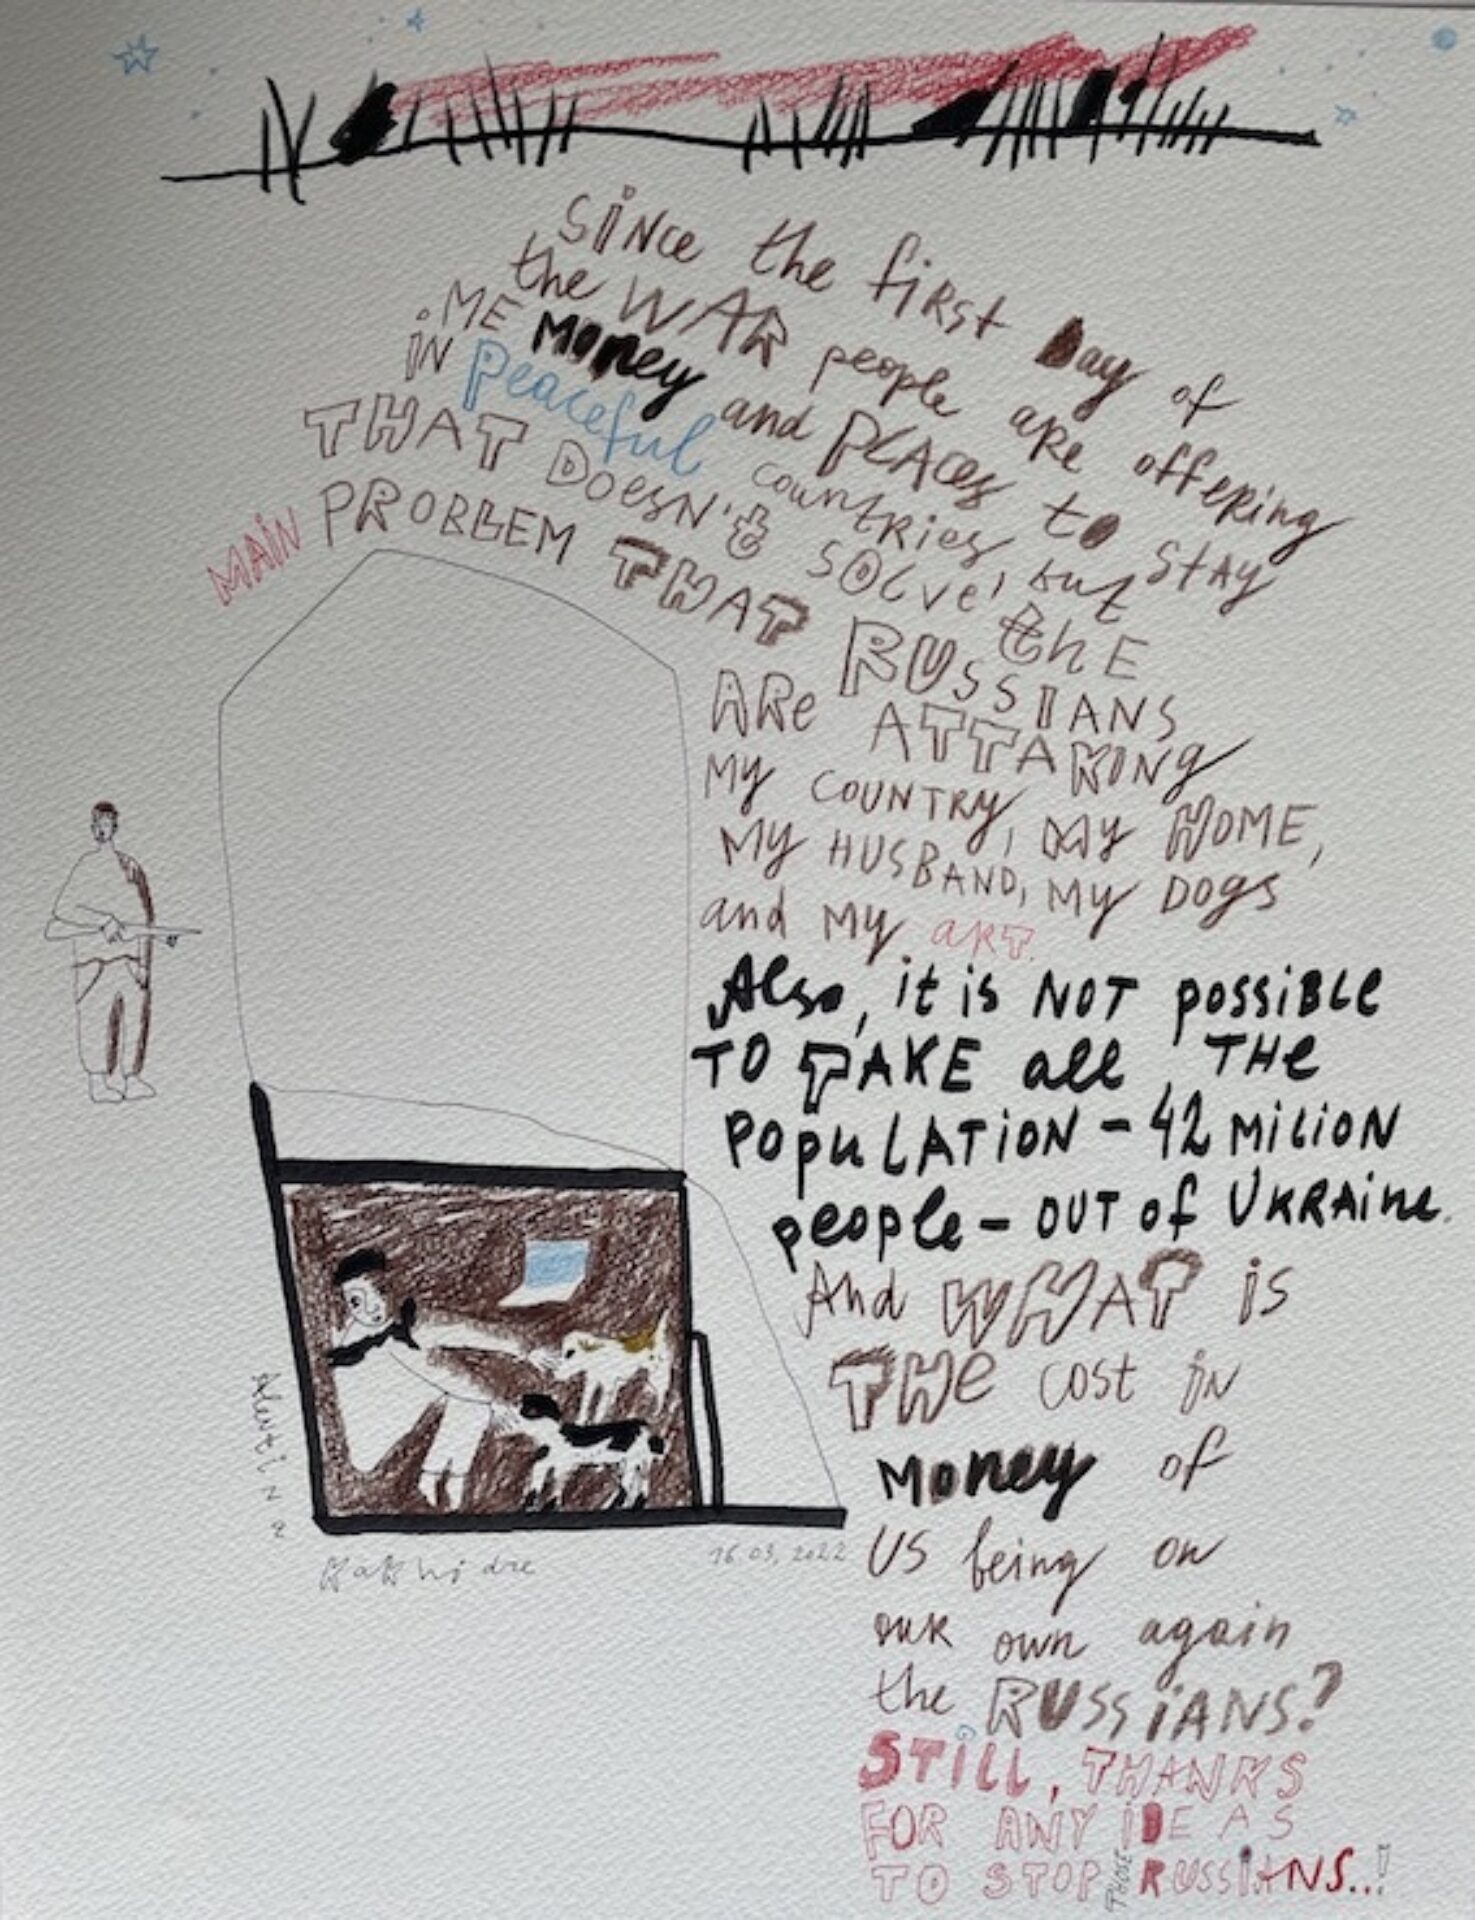 SINce the fiRst Day of
the WAR people aRe offeRing
ME MONey and PLAces to StAy
iN Peaceful countRies, but
THAT DOesN't SOLve the
MAIN PROBLEM THAT RUSSIANS
ARe ATTAKING
My COUNTRy, My HOME,
My HUSBAND, My DOgS
and My aRT.
Also, it is NOT possiBLe
TO TAKE all THe
POpuLATiON - 42 MiLiON
people - OUT of UKRAine.
And WHAT is
THe cost iN
MOney of
US being on
ouR own again
the RUSSiANS?
STiLL, THANKS
FOR ANY IDEAS
TO STOP THOSE RUSSIANS..!
Alevtina
Kakhidze
16.03.2022